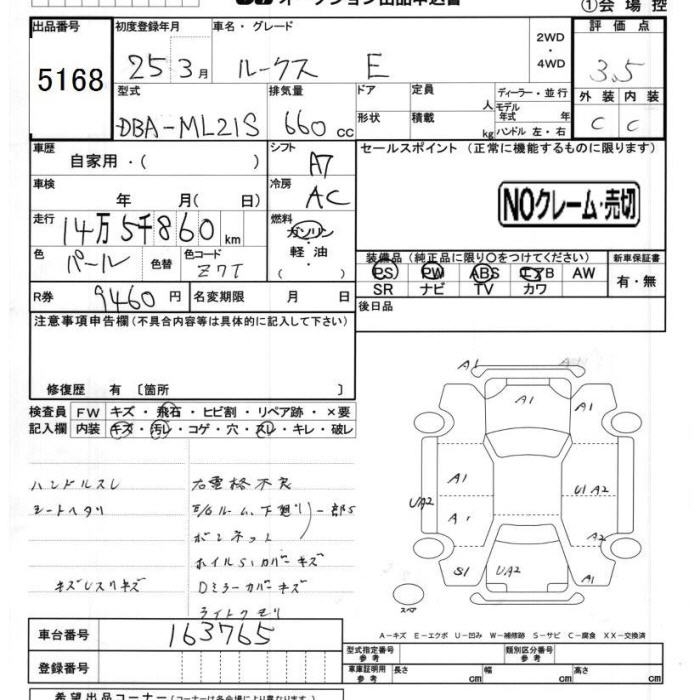 オークション出品申込書
①会場控
出品番号 初度登録年月 車名・グレード 2WD・4WD 評価点
5168 25 3月 ルークス E 3.5
型式 排気量 ドア 定員 人 ディーラー・並行 外装 内装
DBA-ML21S 660cc 形状 積載 kg モデル年式 年 ハンドル 左・右 C C
車歴 自家用・( ) シフト A7 セールスポイント(正常に機能するものに限ります)
車検 年 月( 日) 冷房 AC
NOクレーム・売切
走行 14万5千860km 燃料 ガソリン 軽油 ( )
色 パール 色替 色コード Z7T
装備品(純正品に限り○をつけてください) 新車保証書
PS PW ABS エアB AW 有・無
SR ナビ TV カワ
R券 9460円 名変期限 月 日 後日品
注意事項申告欄(不具合内容等は具体的に記入して下さい)
修復歴 有 〔箇所 〕
検査員 FW キズ・飛石・ヒビ割・リペア跡・×要
記入欄 内装 キズ・汚レ・コゲ・穴・スレ・キレ・破レ
ハンドルスレ 右電格不良
シートヘタリ E/Gルーム、下廻り)一部S
ボンネット
ホイルSiカバーキズ
キズレスリキズ Dミラーカバーキズ
ライトクモリ
A1 A1
A1 A1
A1 U1 A2
UA2 A1 A2
S1 UA2 A1
スペア
A-キズ E-エクボ U-凹み W-補修跡 S-サビ C-腐食 XX-交換済
車台番号 163765
登録番号
型式指定番号 参考 類別区分番号 参考
車庫証明用 参考 長さ cm 幅 cm 高さ cm
希望出品コーナー(コーナーは各会場により異なります)